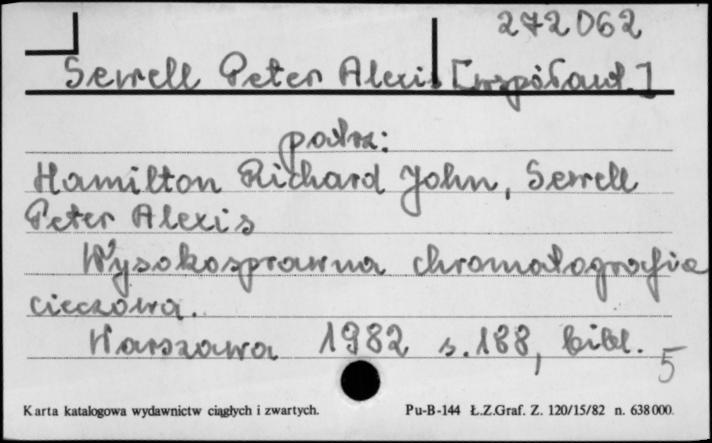 272062
Sewell Peter Alexis [współaut.]
patrz:
Hamilton Richard John, Sewell
Peter Alexis
Wysokosprawna chromatografia
cieczowa.
Warszawa 1982 s. 188, bibl.
5
Karta katalogowa wydawnictw ciągłych i zwartych. Pu-B-144 Ł.Z.Graf. Z. 120/15/82 n. 638000.